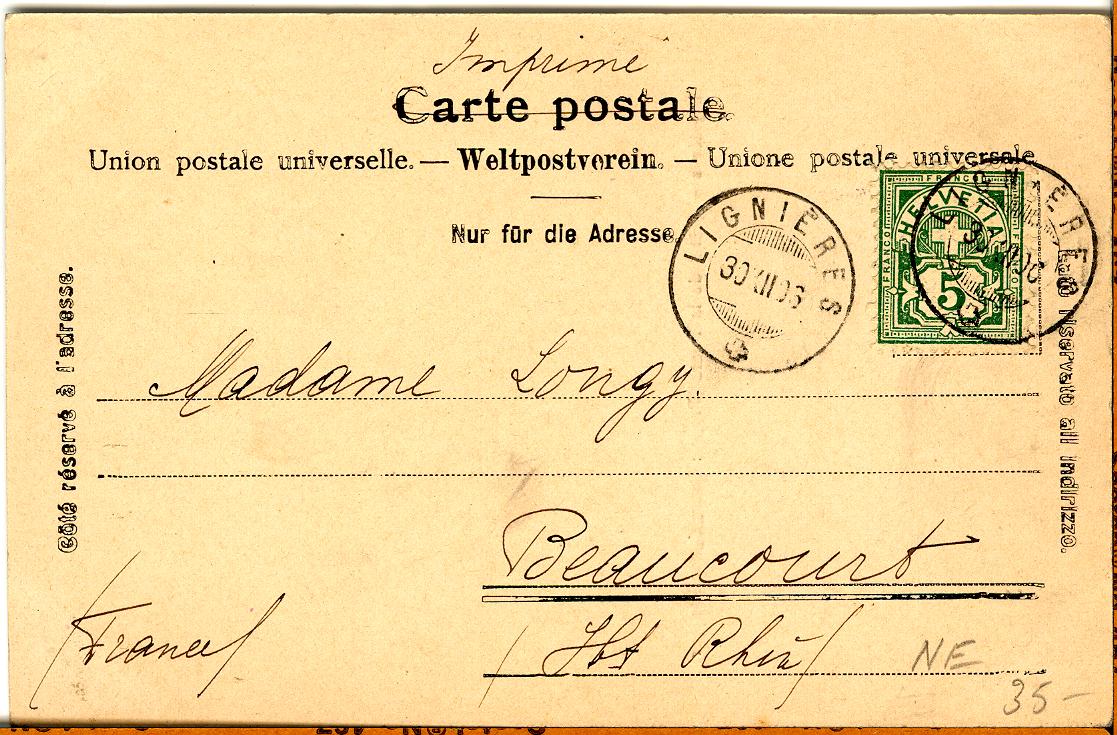 Imprimé
Carte postale.
Union postale universelle. — Weltpostverein. — Unione postale universale
Nur für die Adresse
LIGNIÈRES
30 XII 06
FRANCO
HELVETIA
FRANCO
FRANCO
5
LIGNIÈRES
Côté réservé à l'adresse.
Lato riservato all indirizzo.
Madame Longy.
Beaucourt
(Hbt Rhin)
(France)
NE
35-